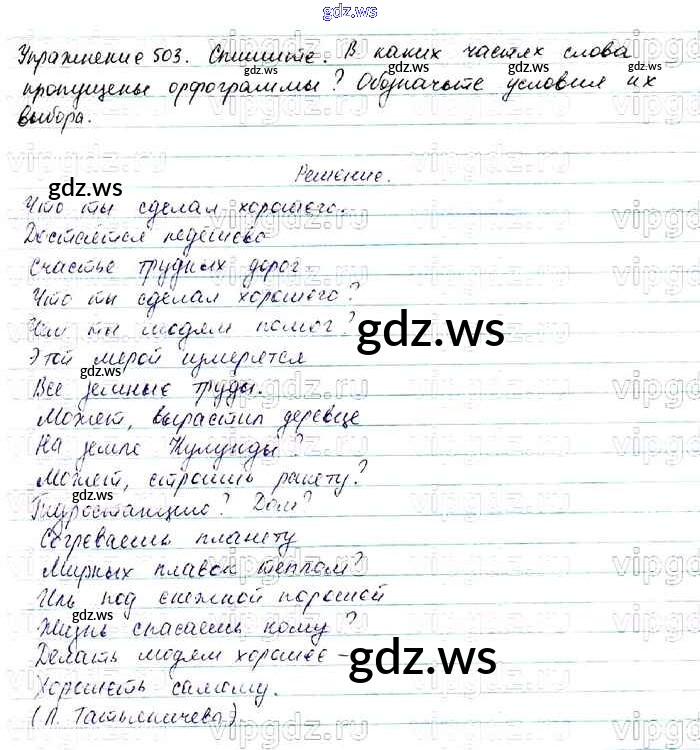 gdz.ws
Упражнение 503. Спишите. В каких частях слова
пропущены орфограммы? Обозначьте условия их
выбора.
Решение.
Что ты сделал хорошего.
Достаётся недёшево
Счастье трудных дорог.
Что ты сделал хорошего?
Чем ты людям помог?
Этой мерой измерятся
Все земные труды.
Может, вырастил деревце
На земле Кулунды?
Может, строишь ракету?
Гидростанцию? Дом?
Согреваешь планету
Мирных плавок теплом?
Иль под снежной порошей
Жизнь спасаешь кому?
Делать людям хорошее –
Хорошеть самому.
(Л. Татьяничева)